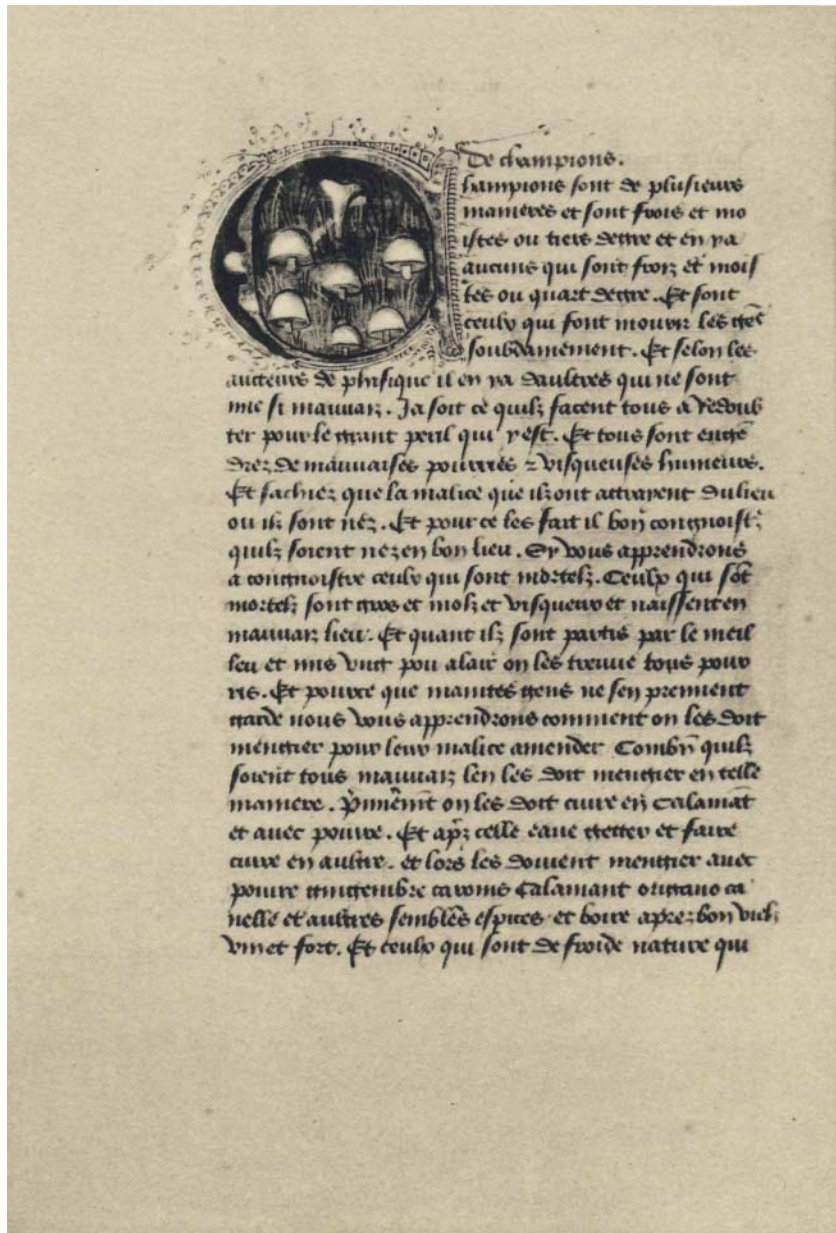 De champions.
hampions sont de plusieurs
manieres et sont frois et mo
istes ou tiers degre et en ya
aucuns qui sont froiz et mois
tes ou quart degre. Et sont
ceulx qui font mourir les gēs
soubdainement. Et selon les
aucteurs de phisique il en ya daultres qui ne sont
mie si mauuaiz. Ja soit ce quilz facent tous a redoub
ter pour le grant peril qui y est. Et tous sont engē
drez de mauuaises pourries ⁊ visqueuses humeurs.
Et sachiez que la malice que ilz ont attrayent du lieu
ou ilz sont nez. Et pour ce les fait il bon congnoist̄
quilz soient nez en bon lieu. Sy vous apprendrons
a congnoistre ceulx qui sont mortelz. Ceulx qui sōt
mortelz sont gros et molz et visqueux et naissent en
mauuaiz lieu. Et quant ilz sont partis par le meil
leu et mis vng pou alair on les treuue tous pour
ris. Et pource que maintes gens ne sen prennent
garde nous vous apprendrons comment on les doit
mengier pour leur malice amender Combn̄ quilz
soient tous mauuaiz len les doit mengier en telle
maniere. P̄mierem̄t on les doit cuire en calamāt
et auec pouure. Et apz celle eaue getter et faire
cuire en aultre. et lors les doiuent mengier auec
poiure gingembre carouis calamant origano ca
nelle et aultres sembles espices et boire aprez bon viel
vin et fort. Et ceulx qui sont de froide nature qui